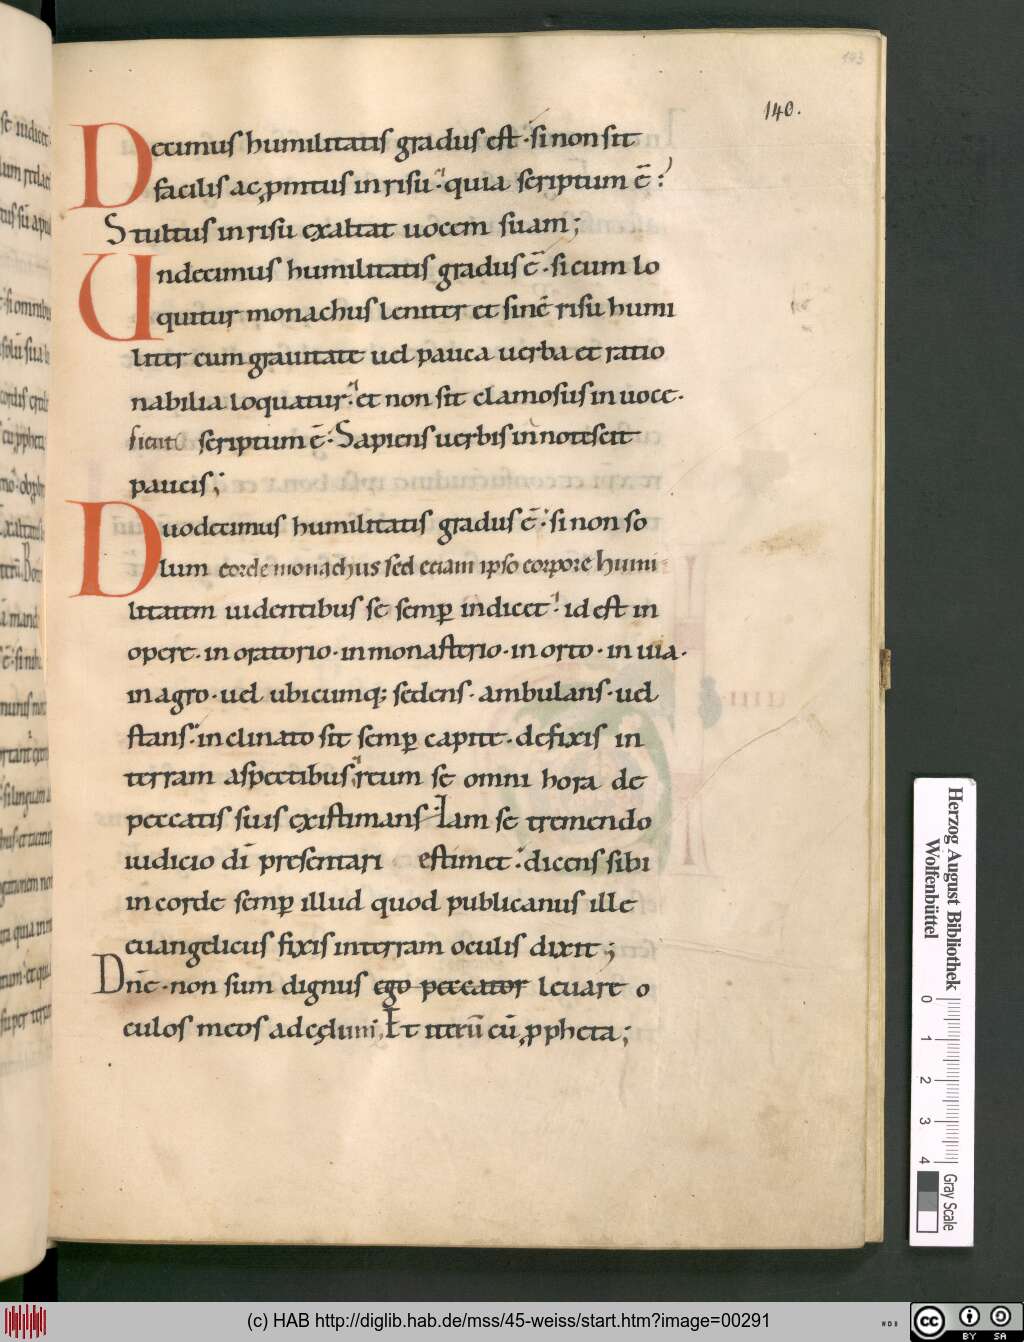 143
140.
Decimus humilitatis gradus est · si non sit
facilis ac ꝓmtus in risu · quia scriptum ē ·
Stultus in risu exaltat uocem suam ;
Undecimus humilitatis gradus ē · si cum lo
quitur monachus leniter et sine risu humi
liter cum grauitate uel pauca uerba et ratio
nabilia loquatur · et non sit clamosus in uoce ·
sicut scriptum ē · Sapiens uerbis innotescit
paucis ;
Duodecimus humilitatis gradus ē · si non so
lum corde monachus sed etiam ipso corpore humi
litatem uidentibus se semꝑ indicet · id est in
opere · in oratorio · in monasterio · in orto · in uia ·
in agro · uel ubicumq; sedens · ambulans · uel
stans · inclinato sit semꝑ capite · defixis in
terram aspectibus · reum se omni hora de
peccatis suis existimans · Iam se tremendo
iudicio dī presentari estimet · dicens sibi
in corde semꝑ illud quod publicanus ille
euangelicus fixis in terram oculis dixit ;
Dnē · non sum dignus ego peccator leuare o
culos meos ad cęlum ; Et iterū cū ꝓpheta ;
Herzog August Bibliothek
Wolfenbüttel
0 1 2 3 4
Gray Scale
(c) HAB http://diglib.hab.de/mss/45-weiss/start.htm?image=00291
WDB
cc BY SA